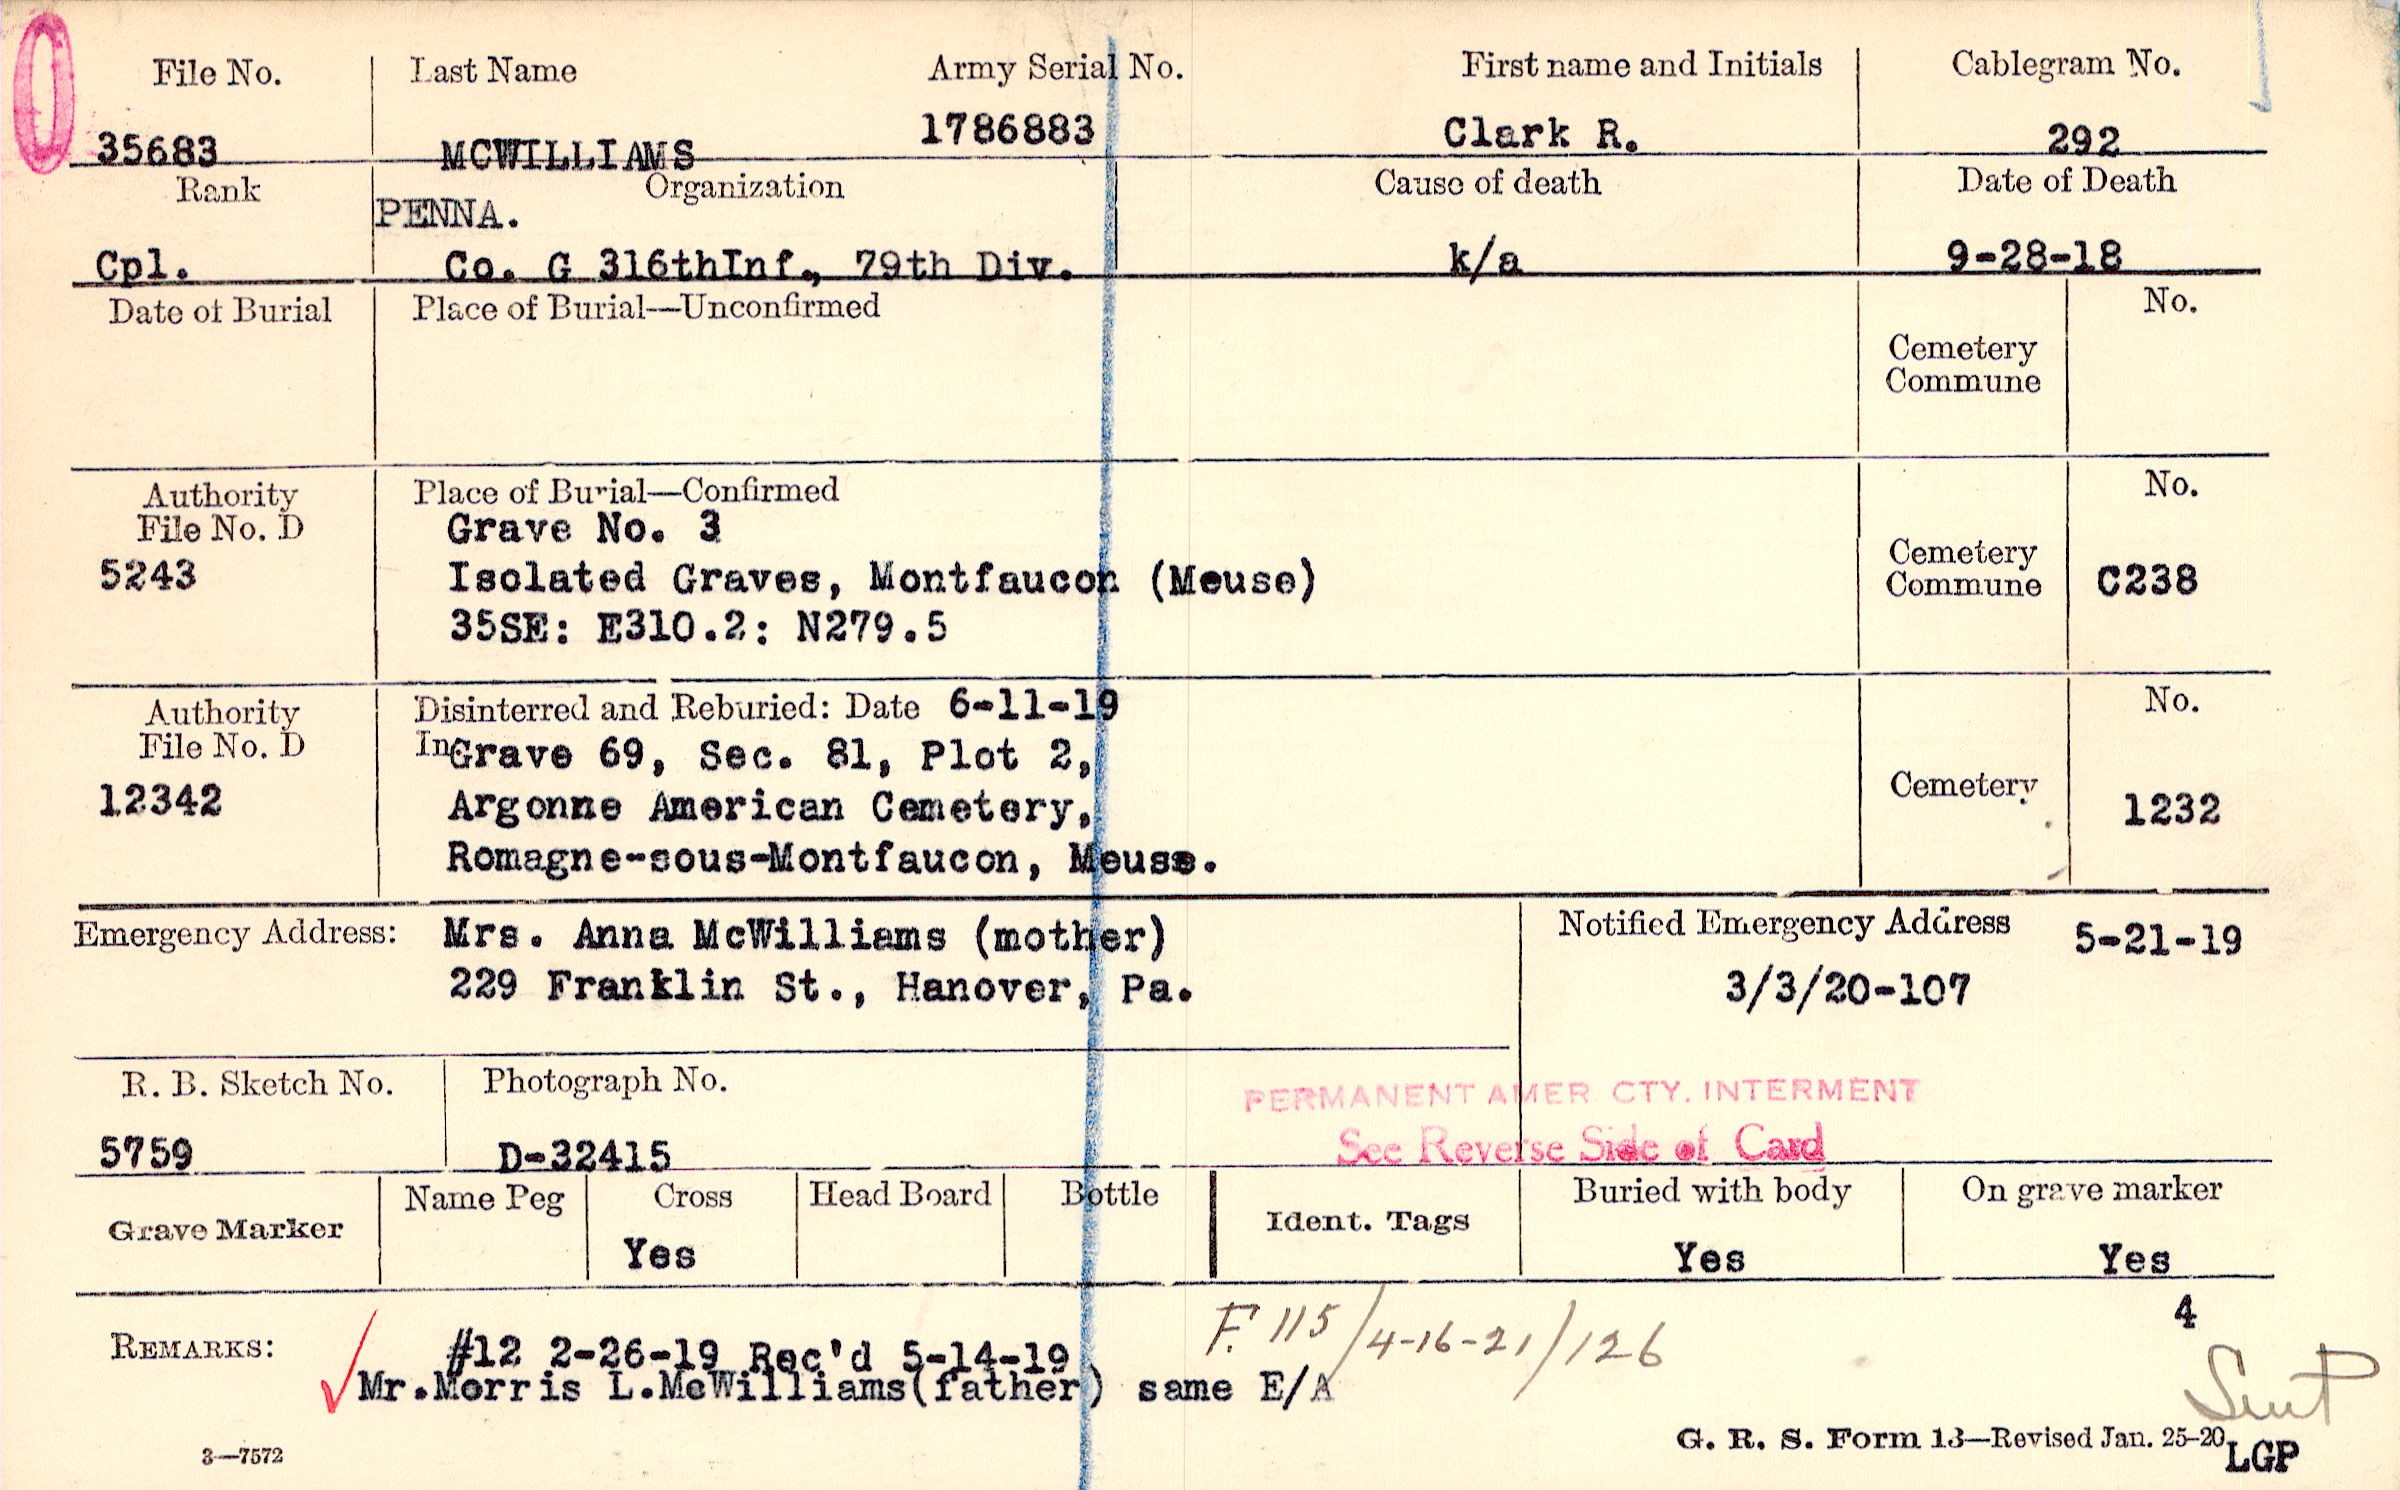 File No. Last Name Army Serial No. First name and Initials Cablegram No.
35683 MCWILLIAMS 1786883 Clark R. 292
Rank Organization Cause of death Date of Death
PENNA.
Cpl. Co. G 316thInf., 79th Div. k/a 9-28-18
Date of Burial Place of Burial—Unconfirmed No.
Cemetery
Commune
Authority Place of Burial—Confirmed No.
File No. D Grave No. 3
5243 Isolated Graves, Montfaucon (Meuse) Cemetery Commune C238
35SE: E310.2: N279.5
Authority Disinterred and Reburied: Date 6-11-19 No.
File No. D In Grave 69, Sec. 81, Plot 2,
12342 Argonne American Cemetery, Cemetery 1232
Romagne-sous-Montfaucon, Meuse.
Emergency Address: Mrs. Anna McWilliams (mother) Notified Emergency Address 5-21-19
229 Franklin St., Hanover, Pa. 3/3/20-107
R. B. Sketch No. Photograph No. PERMANENT AMER CTY. INTERMENT
5759 D-32415 See Reverse Side of Card
Grave Marker Name Peg Cross Head Board Bottle Ident. Tags Buried with body On grave marker
Yes Yes Yes
4
REMARKS: #12 2-26-19 Rec'd 5-14-19 F. 115/4-16-21/126
Mr.Morris L.McWilliams(father) same E/A
3—7572 G. R. S. Form 13—Revised Jan. 25-20 LGP